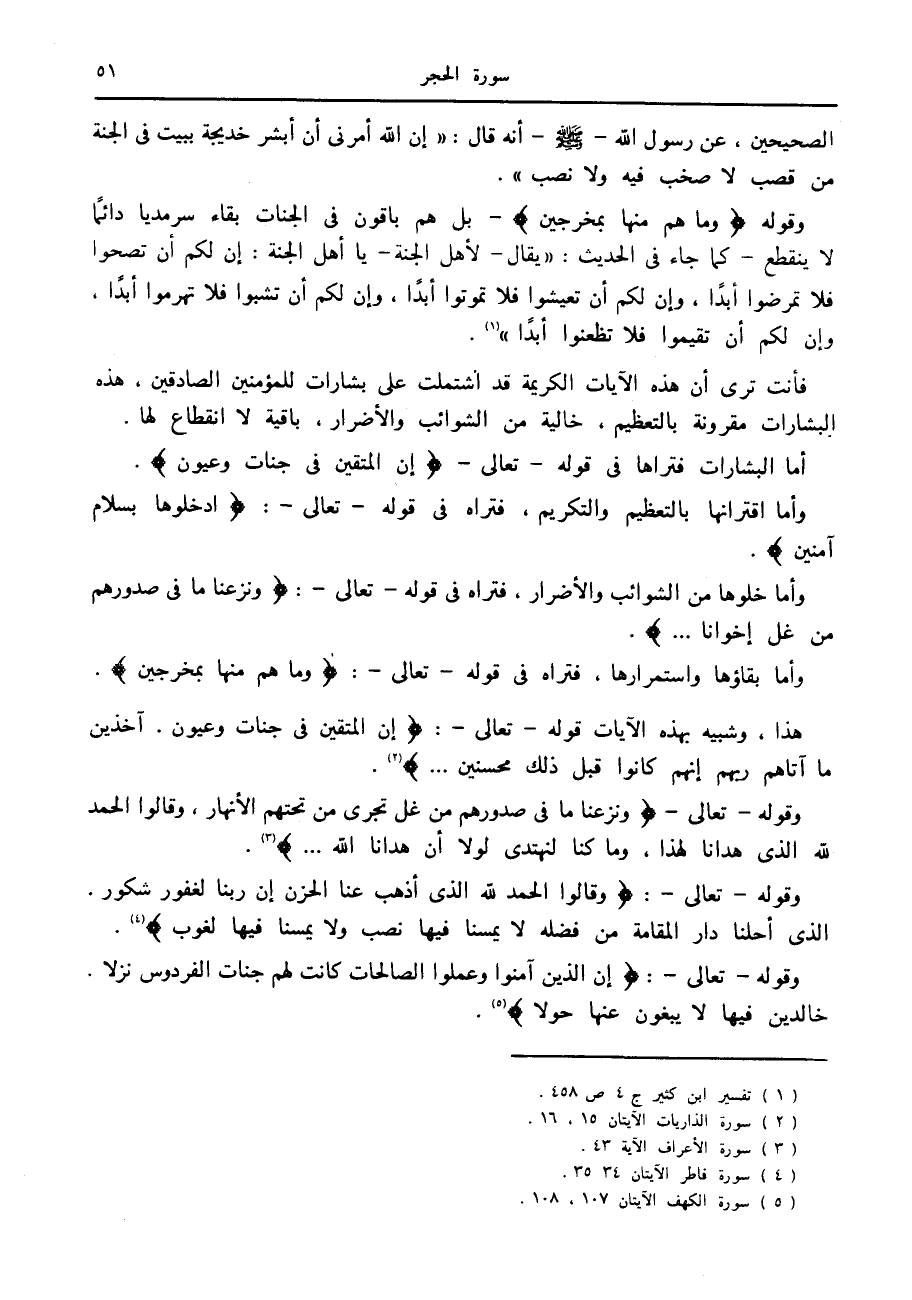 سورة الحجر ٥١
الصحيحين ، عن رسول الله - ﷺ - أنه قال : « إن الله أمرنى أن أبشر خديجة ببيت فى الجنة
من قصب لا صخب فيه ولا نصب » .
وقوله ﴿ وما هم منها بمخرجين ﴾ - بل هم باقون فى الجنات بقاء سرمديا دائمًا
لا ينقطع - كما جاء فى الحديث : « يقال - لأهل الجنة - يا أهل الجنة : إن لكم أن تصحوا
فلا تمرضوا أبدًا ، وإن لكم أن تعيشوا فلا تموتوا أبدًا ، وإن لكم أن تشبوا فلا تهرموا أبدًا ،
وإن لكم أن تقيموا فلا تظعنوا أبدًا »(١) .
فأنت ترى أن هذه الآيات الكريمة قد اشتملت على بشارات للمؤمنين الصادقين ، هذه
البشارات مقرونة بالتعظيم ، خالية من الشوائب والأضرار ، باقية لا انقطاع لها .
أما البشارات فتراها فى قوله - تعالى - ﴿ إن المتقين فى جنات وعيون ﴾ .
وأما اقترانها بالتعظيم والتكريم ، فتراه فى قوله - تعالى - : ﴿ ادخلوها بسلام
آمنين ﴾ .
وأما خلوها من الشوائب والأضرار ، فتراه فى قوله - تعالى - : ﴿ ونزعنا ما فى صدورهم
من غل إخوانا ... ﴾ .
وأما بقاؤها واستمرارها ، فتراه فى قوله - تعالى - : ﴿ وما هم منها بمخرجين ﴾ .
هذا ، وشبيه بهذه الآيات قوله - تعالى - : ﴿ إن المتقين فى جنات وعيون . آخذين
ما آتاهم ربهم إنهم كانوا قبل ذلك محسنين ... ﴾(٢) .
وقوله - تعالى - ﴿ ونزعنا ما فى صدورهم من غل تجرى من تحتهم الأنهار ، وقالوا الحمد
لله الذى هدانا لهذا ، وما كنا لنهتدى لولا أن هدانا الله ... ﴾(٣) .
وقوله - تعالى - : ﴿ وقالوا الحمد لله الذى أذهب عنا الحزن إن ربنا لغفور شكور .
الذى أحلنا دار المقامة من فضله لا يمسنا فيها نصب ولا يمسنا فيها لغوب ﴾(٤) .
وقوله - تعالى - : ﴿ إن الذين آمنوا وعملوا الصالحات كانت لهم جنات الفردوس نزلا .
خالدين فيها لا يبغون عنها حولا ﴾(٥) .
( ١ ) تفسير ابن كثير ج ٤ ص ٤٥٨ .
( ٢ ) سورة الذاريات الآيتان ١٥ ، ١٦ .
( ٣ ) سورة الأعراف الآية ٤٣ .
( ٤ ) سورة فاطر الآيتان ٣٤ ٣٥ .
( ٥ ) سورة الكهف الآيتان ١٠٧ ، ١٠٨ .